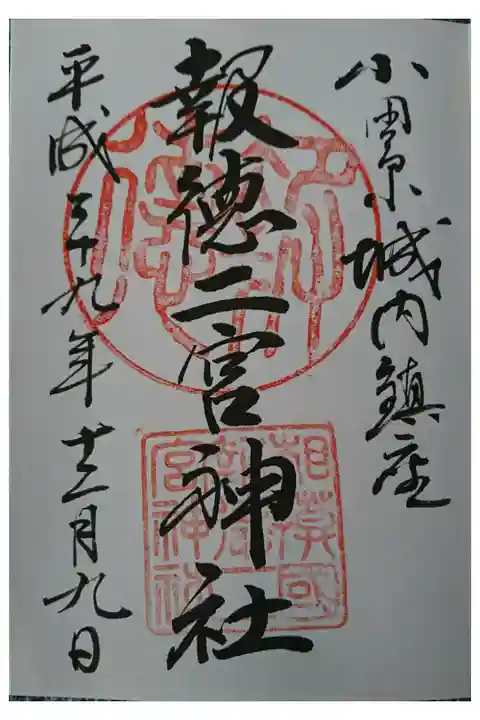 小田原城内鎮座
報徳二宮神社
平成二十九年十二月九日
相模國
報徳二
宮神社